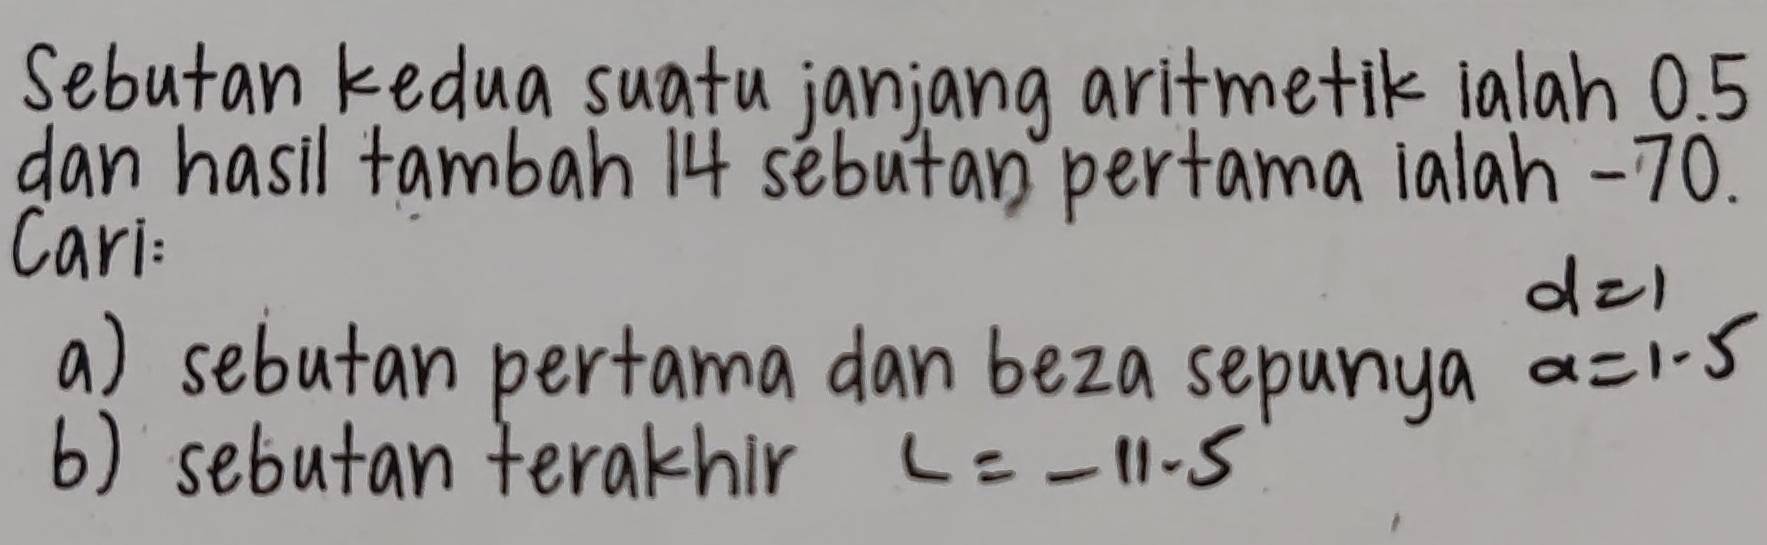 Sebutan kedua suatu janjang aritmetik ialah 0.5
dan hasil tambah 14 sebutan pertama ialah -70.
Cari:
d=1
a) sebutan pertama dan beza sepunya a=1.5
b) sebutan terakhir L = -11.5